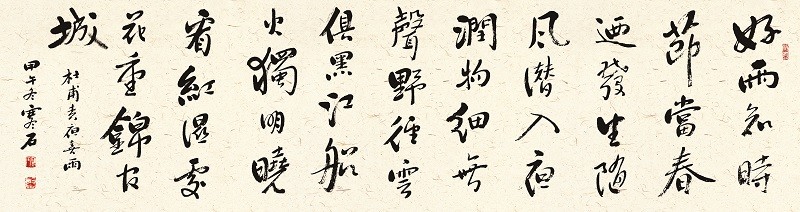 好雨知時
節當春
迺發生隨
風潛入夜
潤物細無
聲野徑雲
俱黑江船
火獨明曉
看紅濕處
花重錦官
城
杜甫春夜喜雨
甲午冬寒石